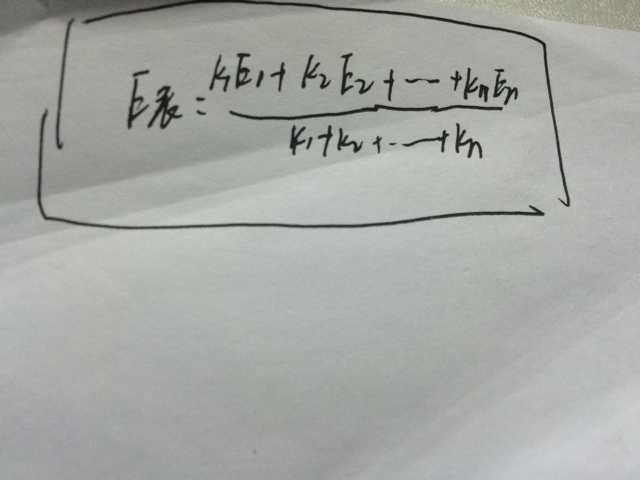 E表 = K1E1 + K2E2 + ... + KnEn
K1 + K2 + ... + Kn